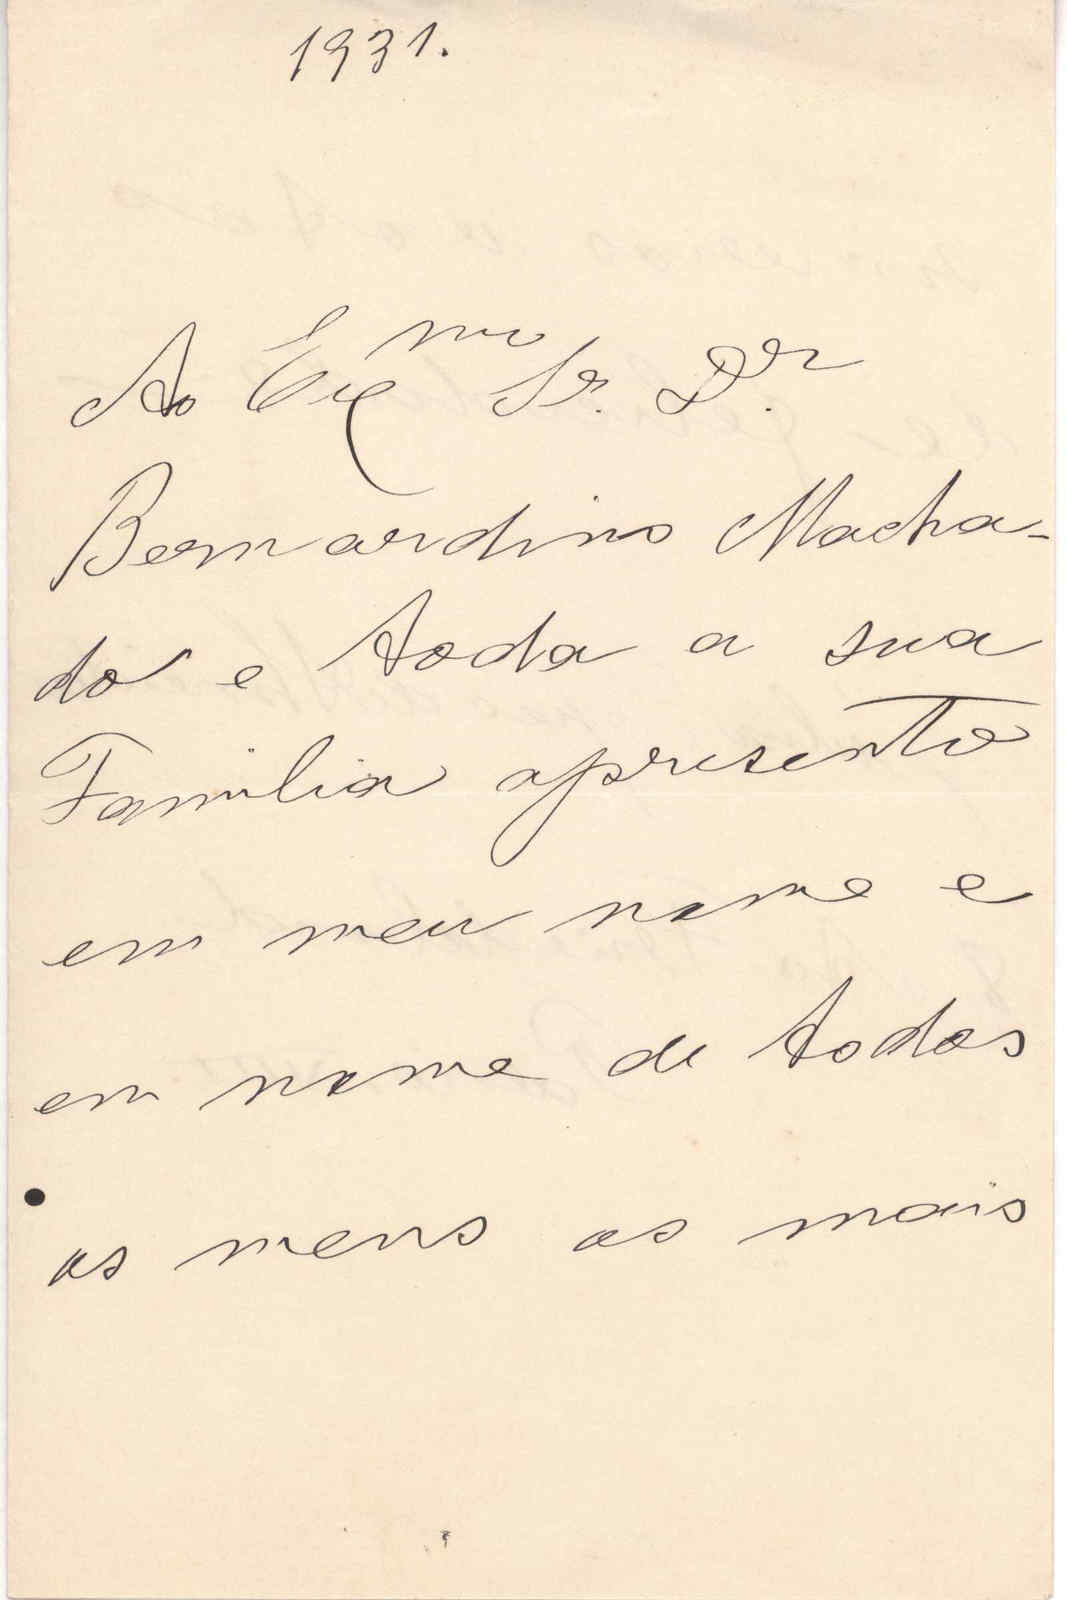 1931.
Ao Exmo Sr. Dr.
Bernardino Macha-
do e toda a sua
Familia apresento
em meu nome e
em nome de todos
os meus os mais